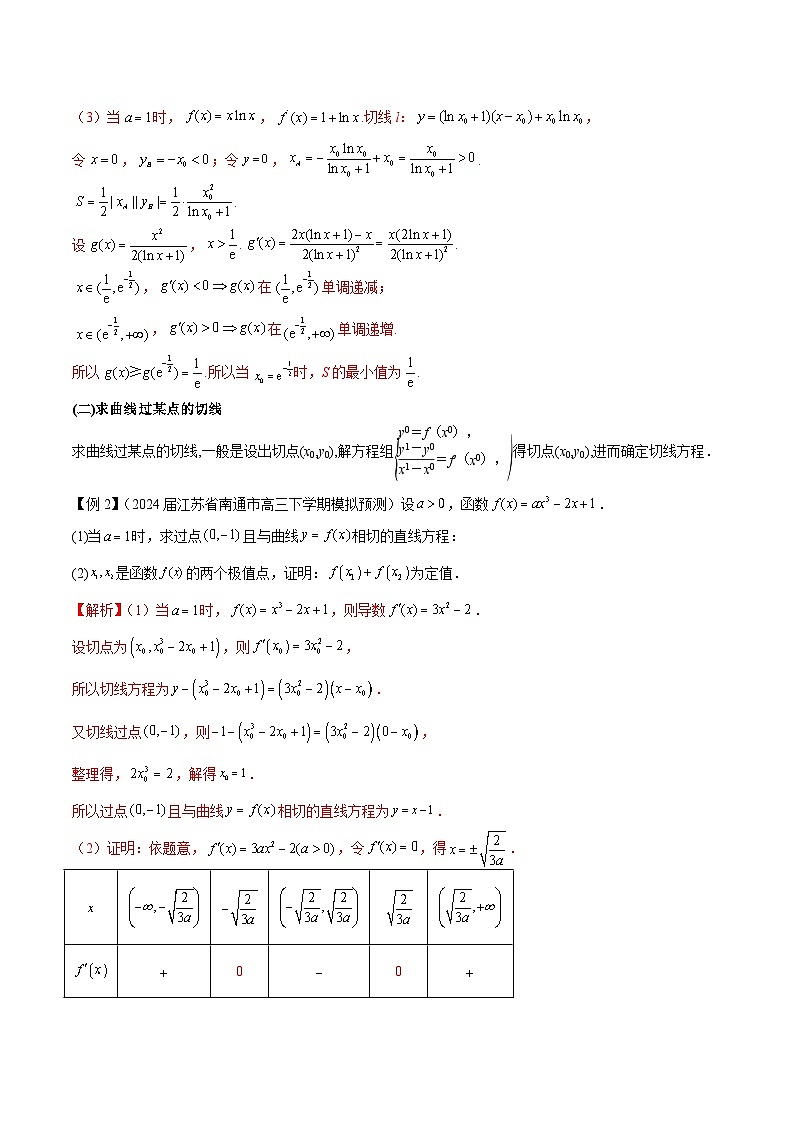 （3）当 a = 1时， f(x) = x ln x ， f′(x) = 1 + ln x .切线 l： y = (ln x₀ + 1)(x − x₀) + x₀ ln x₀ ，
令 x = 0 ， y_B = −x₀ < 0 ；令 y = 0 ， x_A = −\frac{x₀ ln x₀}{ln x₀ + 1} + x₀ = \frac{x₀}{ln x₀ + 1} > 0 .
S = \frac{1}{2} | x_A || y_B |= \frac{1}{2} · \frac{x₀²}{ln x₀ + 1} .
设 g(x) = \frac{x²}{2(ln x + 1)} ， x > \frac{1}{e} . g′(x) = \frac{2x(ln x + 1) − x}{2(ln x + 1)²} = \frac{x(2ln x + 1)}{2(ln x + 1)²} .
x ∈ (\frac{1}{e}, e^{-\frac{1}{2}}) ， g′(x) < 0 ⇒ g(x) 在 (\frac{1}{e}, e^{-\frac{1}{2}}) 单调递减；
x ∈ (e^{-\frac{1}{2}}, +∞) ， g′(x) > 0 ⇒ g(x) 在 (e^{-\frac{1}{2}}, +∞) 单调递增.
所以 g(x) ≥ g(e^{-\frac{1}{2}}) = \frac{1}{e} .所以当 x₀ = e^{-\frac{1}{2}} 时，S 的最小值为 \frac{1}{e} .
(二)求曲线过某点的切线
求曲线过某点的切线,一般是设出切点(x₀,y₀),解方程组{y0＝f（x0），\frac{y1－y0}{x1－x0}＝f′（x0），)得切点(x₀,y₀),进而确定切线方程．
【例 2】（2024 届江苏省南通市高三下学期模拟预测）设 a > 0 ，函数 f(x) = ax³ − 2x + 1 ．
(1)当 a = 1时，求过点 (0,−1) 且与曲线 y = f(x) 相切的直线方程：
(2) x₁, x₂ 是函数 f(x) 的两个极值点，证明： f(x₁) + f(x₂) 为定值．
【解析】（1）当 a = 1时， f(x) = x³ − 2x + 1 ，则导数 f′(x) = 3x² − 2 ．
设切点为 (x₀, x₀³ − 2x₀ + 1) ，则 f′(x₀) = 3x₀² − 2 ，
所以切线方程为 y − (x₀³ − 2x₀ + 1) = (3x₀² − 2)(x − x₀) ．
又切线过点 (0,−1) ，则 −1 − (x₀³ − 2x₀ + 1) = (3x₀² − 2)(0 − x₀) ，
整理得， 2x₀³ = 2 ，解得 x₀ = 1 ．
所以过点 (0,−1) 且与曲线 y = f(x) 相切的直线方程为 y = x − 1 ．
（2）证明：依题意， f′(x) = 3ax² − 2(a > 0) ，令 f′(x) = 0 ，得 x = ±\sqrt{\frac{2}{3a}} ．
x (−∞, −\sqrt{\frac{2}{3a}}) −\sqrt{\frac{2}{3a}} (−\sqrt{\frac{2}{3a}}, \sqrt{\frac{2}{3a}}) \sqrt{\frac{2}{3a}} (\sqrt{\frac{2}{3a}}, +∞)
f′(x) + 0 − 0 +